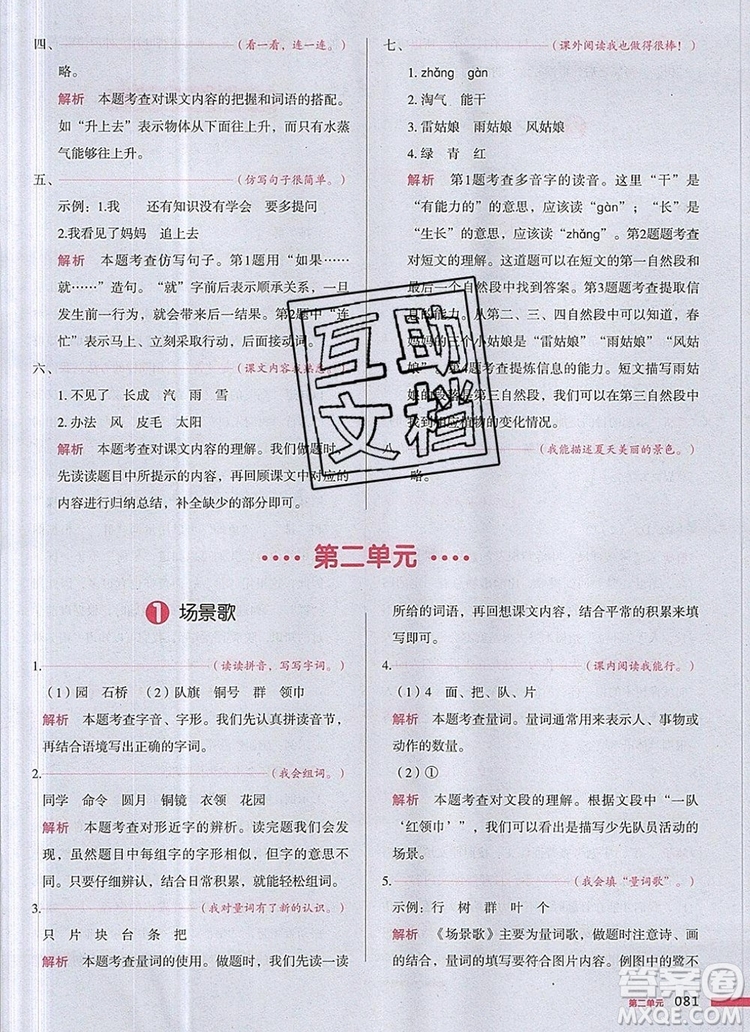 四、(看一看，连一连。)
略。
解析 本题考查对课文内容的把握和词语的搭配。
如“升上去”表示物体从下往上升，而只有水蒸
气能够往上升。
五、(仿写句子很简单。)
示例：1.我 还有知识没有学会 要多提问
2.我看见了妈妈 追上去
解析 本题考查仿写句子。第1题用“如果……
就……”造句。
前一行为，就会带来后一结果。第2题中“连
忙”表示马上、立刻采取行动，后面接动词。
六、(课文内容我熟悉。)
1.不见了 长成 汽 雨 雪
2.办法 风 皮毛 太阳
解析 本题考查对课文内容的理解。我们做题时，
先读读题目中所提示的内容，再回顾课文中对应的
内容进行归纳总结，补全缺少的部分即可。
七、(课外阅读我也做得很棒！)
1. zhǎng gàn
2.淘气 能干
3.雷姑娘 雨姑娘 风姑娘
4.绿 青 红
解析 第1题考查多音字的读音。这里“干”是
“有能力的”的意思，应该读“gàn”；“长”是
“生长”的意思，应该读“zhǎng”。第2题题考查
对短文的理解。这道题可以在短文的第一自然段
中找到答案。第3题题考查提炼信
息的能力。从第二、三、四自然段中可以发现，春
妈妈的三个小姑娘就是雷姑娘、雨姑娘和风姑
娘。第4题考查提炼信息的能力。短文描写雨姑
娘的段落是第三自然段，我们从第三自然段可以
找到相应植物的变化情况。
八、(我能描述夏天美丽的景色。)
略。
互助
文档
第二单元
1 场景歌
1.(读读拼音，写写字词。)
(1)园 石桥 (2)队旗 铜号 群 领巾
解析 本题考查字音、字形。我们先认真拼读音节，
再结合语境写出正确的字词。
2.(我会组词。)
同学 命令 圆月 铜镜 衣领 花园
解析 本题考查对形近字的辨析。读完题我们会
发现，虽然题目中每组的字字形相近，但是意思不
同。只要仔细辨认，结合日常积累，就能轻松组词。
3.(我对量词有了新的认识。)
只 片 块 台 条 把
解析 本题考查量词的使用。做题时，先读一读
所给的词语，再回想课文内容，结合平常的积累来填
写即可。
4.(课内阅读我能行。)
(1)4 面、把、队、片
解析 本题考查量词。量词通常用来表示人、事物或
动作的数量。
(2)①
解析 本题考查对文段的理解。根据文段中“一队
‘红领巾’”，我们可以知道，这是描写少先队员活动的
场景。
5.(我会填“量词歌”。)
示例：行 树 群 叶 个
解析 《场景歌》主要为量词歌，做题时注意诗、画
的结合，量词的填写要符合图片内容。例图中的鹭不
第二单元 081
答案圈
MXQE.COM